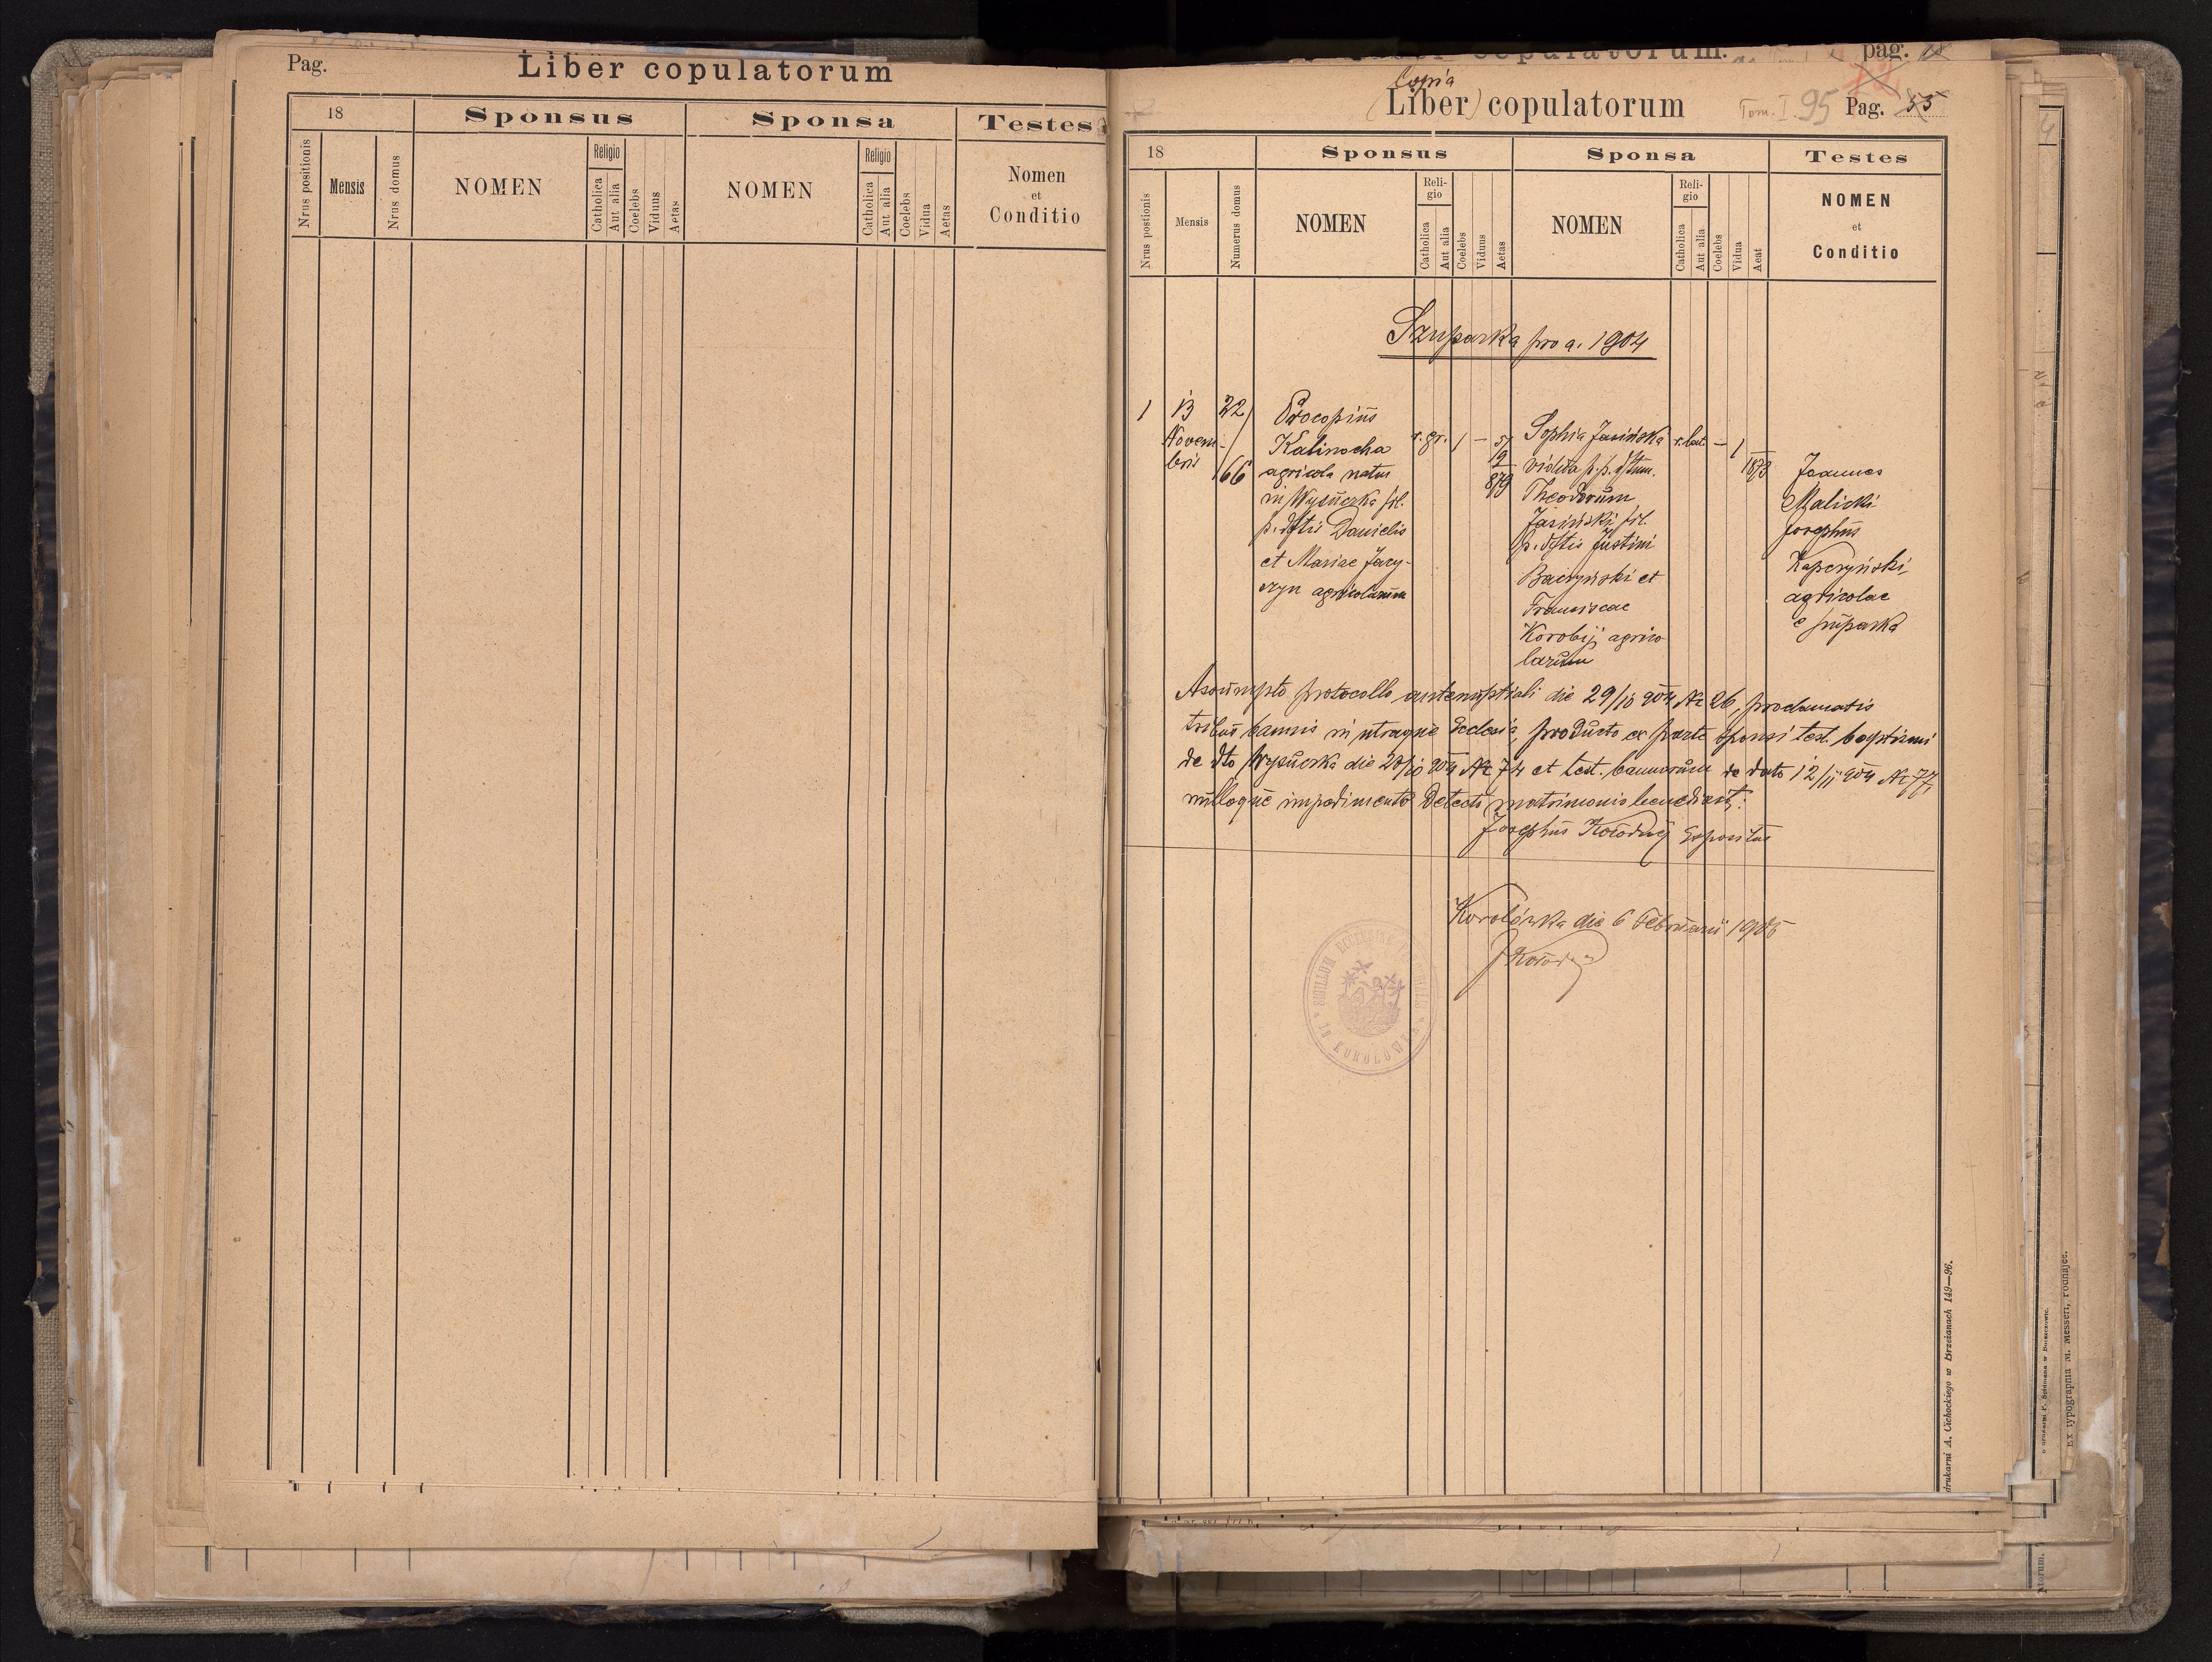 Pag.
Liber copulatorum
18
Sponsus
Sponsa
Testes
Nrus positionis
Mensis
Nrus domus
NOMEN
Religio
Catholica
Aut alia
Coelebs
Viduus
Aetas
NOMEN
Religio
Catholica
Aut alia
Coelebs
Vidua
Aetas
Nomen
et
Conditio
pag.
Copia
(Liber) copulatorum
Tom. I. 95 Pag. 55
18
Sponsus
Sponsa
Testes
Nrus postionis
Mensis
Numerus domus
NOMEN
Reli-
gio
Catholica
Aut alia
Coelebs
Viduus
Aetas
NOMEN
Reli-
gio
Catholica
Aut alia
Coelebs
Vidua
Aeat
NOMEN
et
Conditio
Szuparka pro a. 1904
1
13
Novem-
bris
22/
/166
Procopius
Kalinocha
agricola natus
in Wysuczka fil.
p. dftis Danielis
et Mariae Jacy-
czyn agricolarum
r. gr.
1
-
5/
12
879
Sophia Jasińska
vidua p. p. dftum.
Theodorum
Jasiński fil.
p. dftis Justini
Baczyński et
Franciscae
Korobij agrico
larum
r. lat.
-
1
1873
Joannes
Malicki
Josephus
Kapczyński,
agricolae
e Szuparka
Assumpto protocollo antenuptiali die 29/10 904 Nr 26, proclamatis
tribus bannis in utraque Ecclesia, producto ex parte sponsi test. baptismi
de dto Wysuczka die 20/10 904 Nr 74 et test. bannorum de dato 12/11 904 Nr 77,
nulloque impedimento detecto matrimonio benedixit:
Josephus Kołodzij Expositus
Korolówka die 6 Februarii 1905
J Kołodzij
drukarni A. Cichockiego w Brzeżanach 149—96.
Ex typographia M. Messeri, Podhajce.